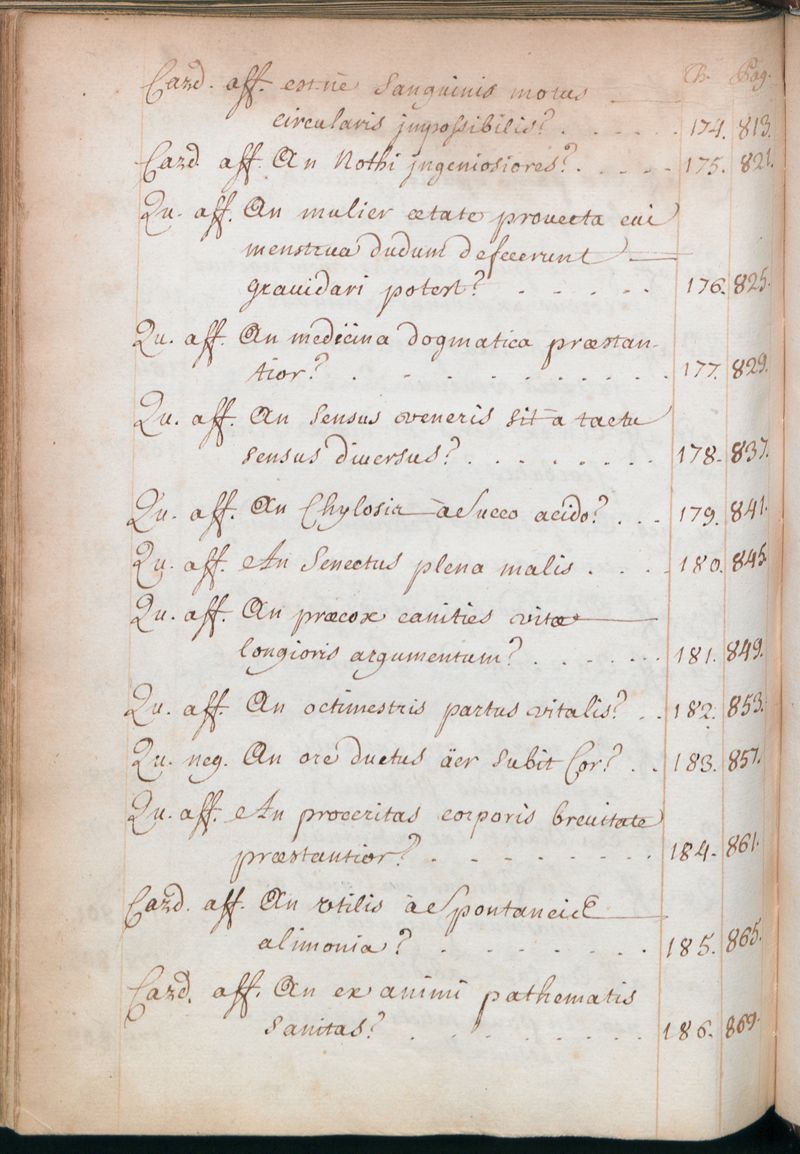 Th. Pag.
Card. aff. estne Sanguinis motus
circularis jmpossibilis? . . . . . . 174. 813.
Card aff. An Nothi jngeniosiores? . . . . . 175. 821.
Qu. aff. An mulier ætate prouecta cui
menstrua dudum defecerunt
grauidari potest? . . . . . . 176. 825.
Qu. aff. An medicina dogmatica præstan-
tior? . . . . . . . . . . 177. 829.
Qu. aff. An sensus veneris sit a tactu
sensus diuersus? . . . . . . . . 178. 837.
Qu. aff. An Chylosis à Succo acido? . . . 179. 841.
Qu. aff. An Senectus plena malis . . . . 180. 845.
Qu. aff. An præcox canities vitæ
longioris argumentum? . . . . . . 181. 849.
Qu. aff. An octimestris partus vitalis? . . 182. 853.
Qu. neg. An ore ductus äer subit Cor? . . 183. 857.
Qu. aff. An proceritas corporis breuitate
præstantior? . . . . . . . . 184. 861.
Card. aff. An vtilis à Spontaneis
alimonia? . . . . . . . . 185. 865.
Card. aff. An ex animi pathematis
sanitas? . . . . . . . . . 186. 869.